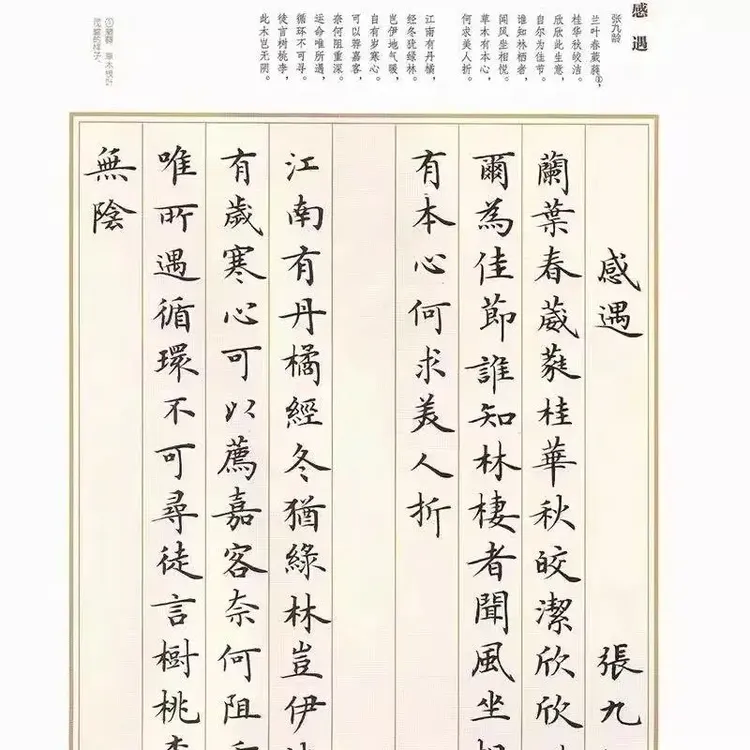 感遇
张九龄
兰叶春葳蕤①，
桂华秋皎洁。
欣欣此生意，
自尔为佳节。
谁知林栖者，
闻风坐相悦。
草木有本心，
何求美人折。
江南有丹橘，
经冬犹绿林。
岂伊地气暖，
自有岁寒心。
可以荐嘉客，
奈何阻重深。
运命唯所遇，
循环不可寻。
徒言树桃李，
此木岂无阴。
①葳蕤：草木枝叶
茂盛的样子。
感遇 張九
蘭葉春葳蕤桂華秋皎潔欣欣
爾為佳節誰知林棲者聞風坐
有本心何求美人折
江南有丹橘經冬猶綠林豈伊
有歲寒心可以薦嘉客奈何阻
唯所遇循環不可尋徒言樹桃
無陰